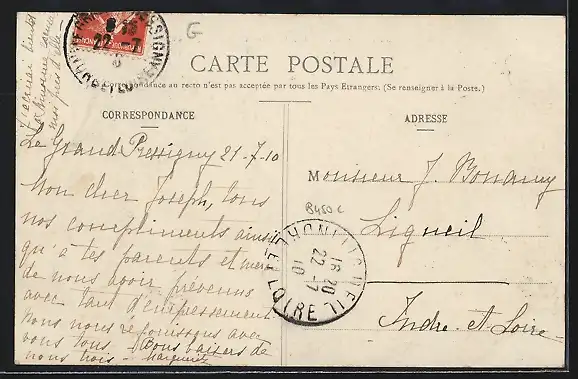 G
CARTE POSTALE
La Correspondance au recto n'est pas acceptée par tous les Pays Etrangers. (Se renseigner à la Poste.)
CORRESPONDANCE
Le Grand Pressigny 21-7-10
Mon cher Joseph, tous
nos compliments ainsi
qu'à tes parents et merci
de nous avoir prévenus
avec tant d'empressement
Nous nous réjouissons avec
vous tous. Bons baisers de
nous trois - Marguerite
ADRESSE
Monsieur J.
Ligueil
Indre-et-Loire
B450 c
LIGUEIL
16 20
22 - 7
10
INDRE ET LOIRE
22 - 7